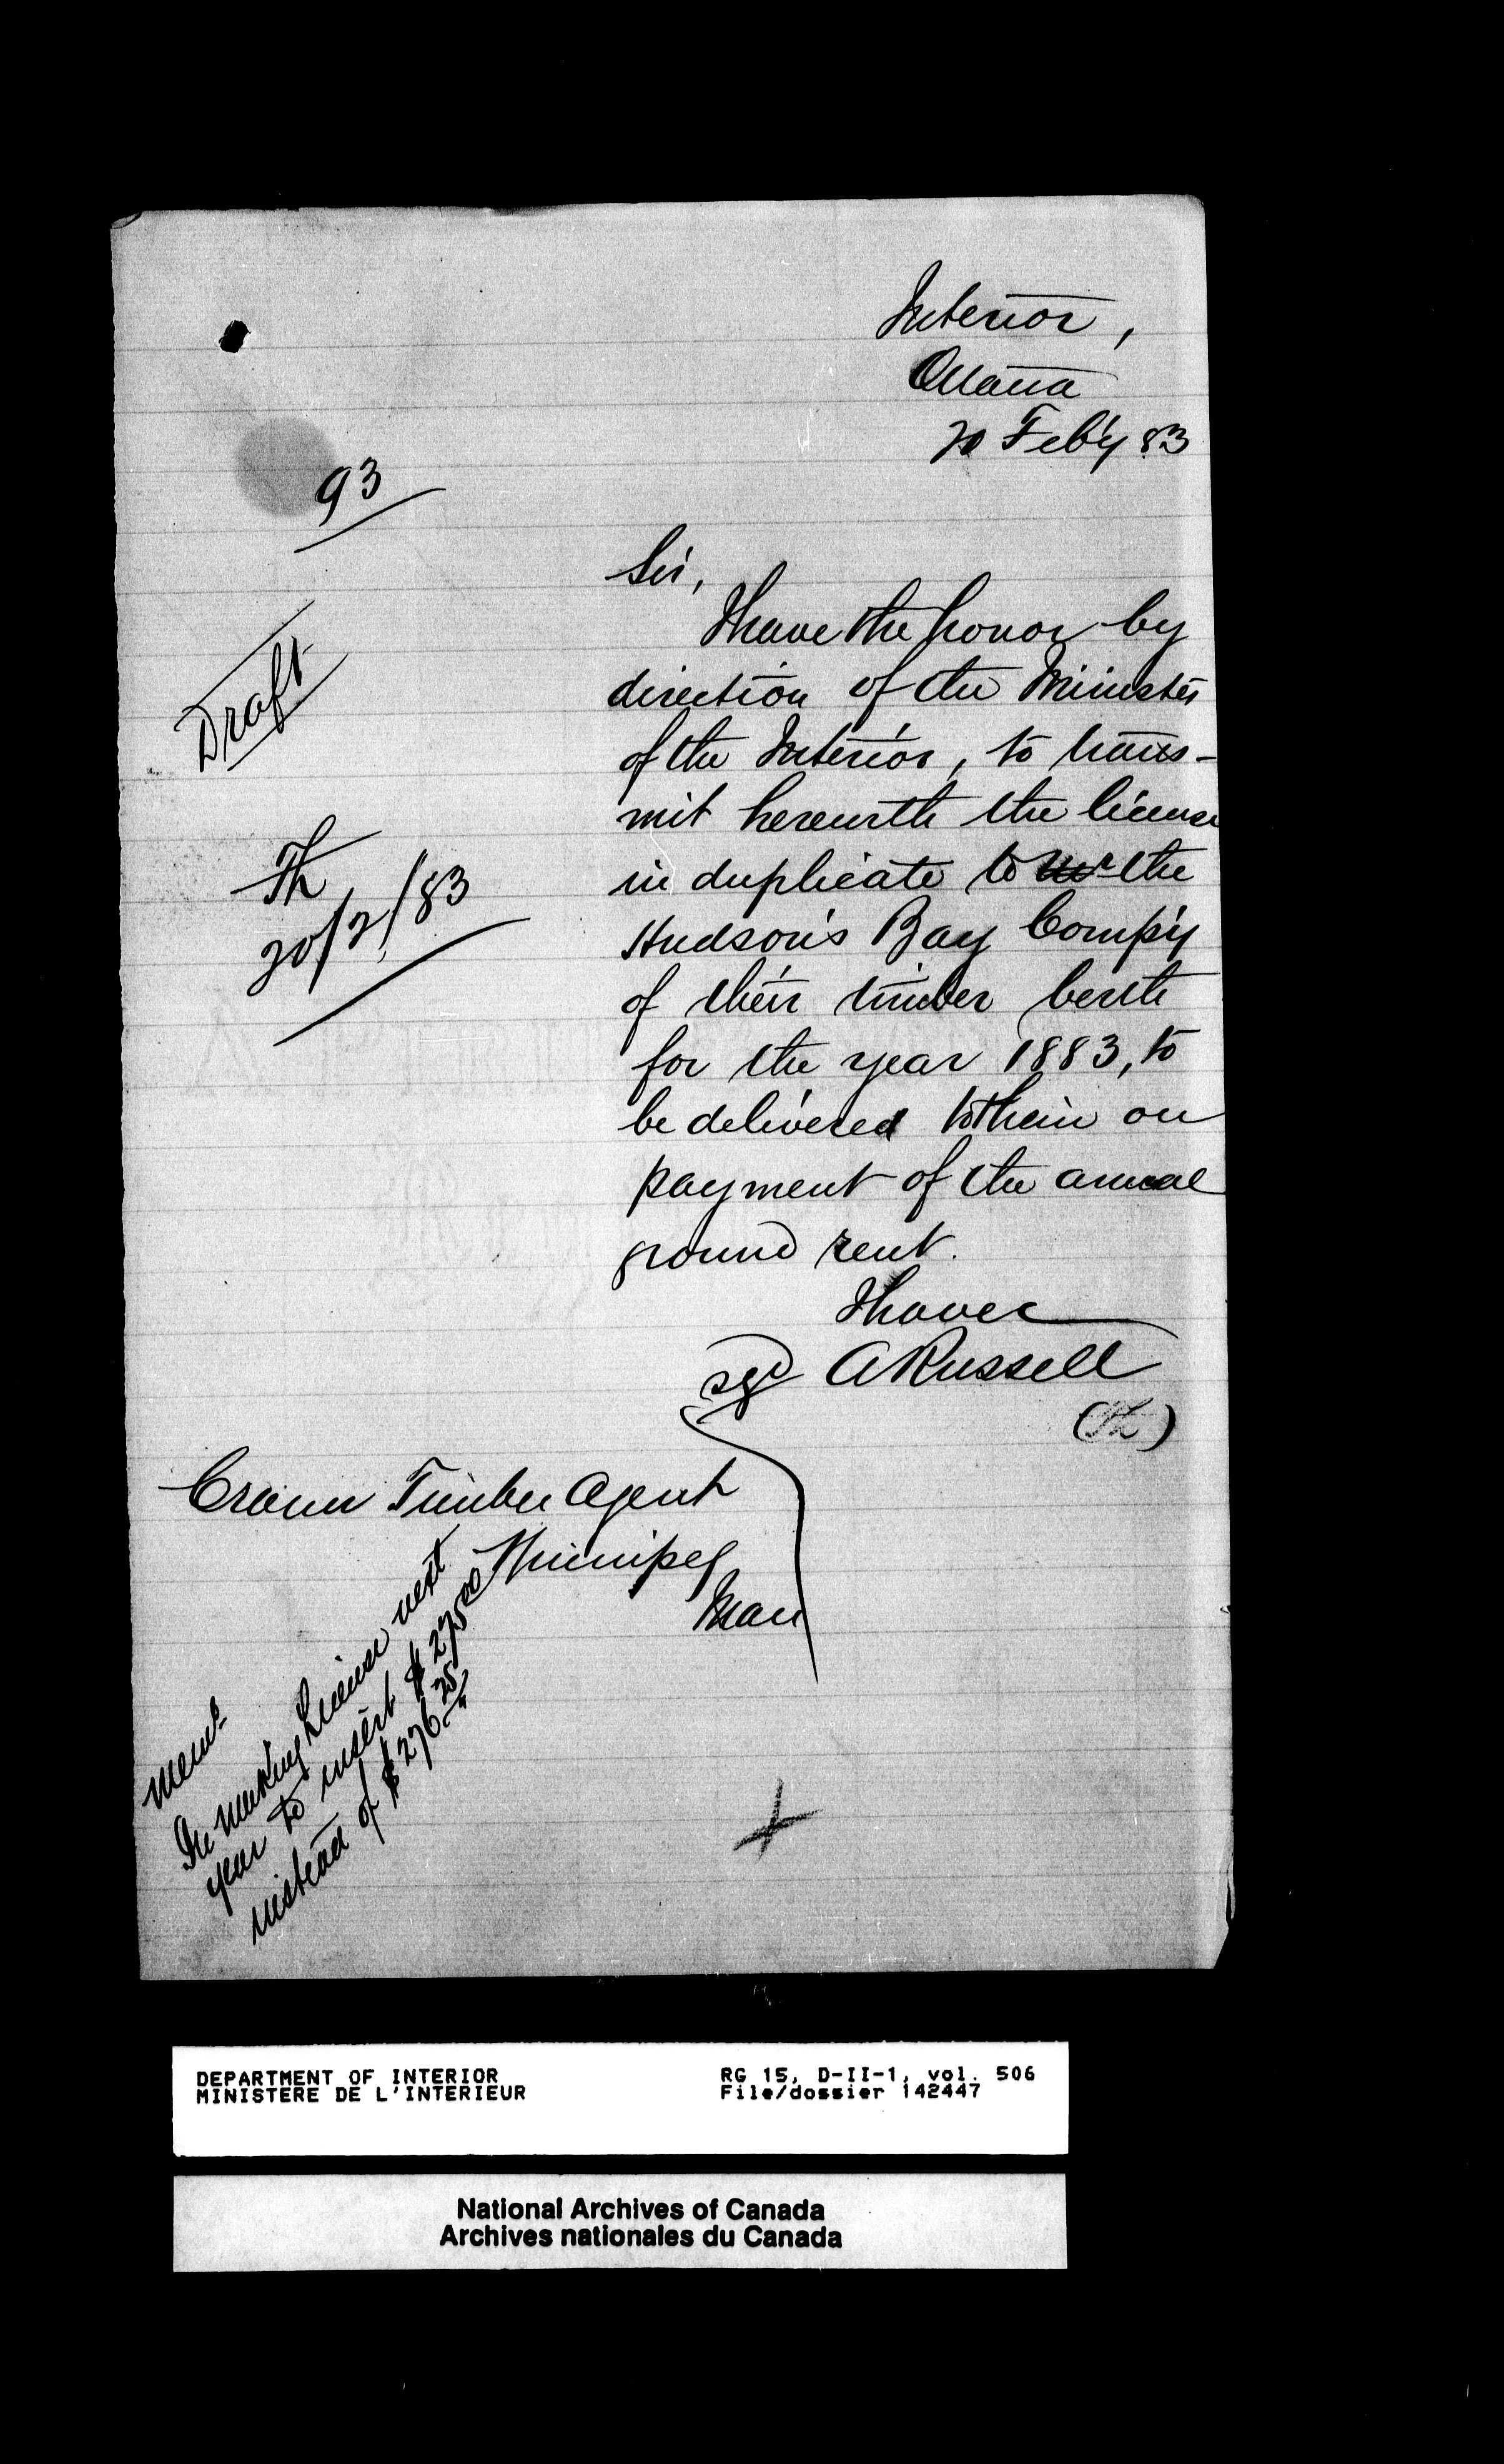 Interior,
Ottawa
20 Feb'y 83
93
Draft
20/2/83
Sir,
I have the honor by
direction of the Minister
of the Interior, to trans-
mit herewith the license
in duplicate to the
Hudson's Bay Comp'y
of their timber berth
for the year 1883, to
be delivered to them on
payment of the annual
ground rent.
I have
sgd A Russell
Crown Timber Agent
Winnipeg
Man
Memo
In making License next
year to insert $275.00
instead of $276.25
DEPARTMENT OF INTERIOR
MINISTERE DE L'INTERIEUR
RG 15, D-II-1, vol. 506
File/dossier 142447
National Archives of Canada
Archives nationales du Canada